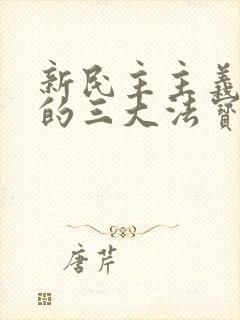 新民主主義
的三大法寶
唐芹